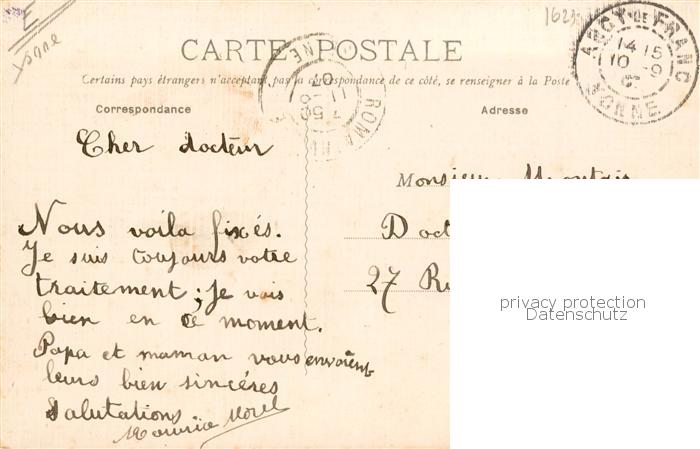 E
Yonne
162
CARTE POSTALE
Certains pays étrangers n'acceptant pas la correspondance de ce côté, se renseigner à la Poste
Correspondance
Adresse
Cher docteur
Nous voila fixés.
Je suis toujours votre
traitement ; je vais
bien en ce moment.
Papa et maman vous envoient
leurs bien sincéres
salutations
Maurice Morel
Monsieur
Doct
27 Ru
ANCY-LE-FRANC
14 15
10 -9
YONNE
ROMA
privacy protection
Datenschutz